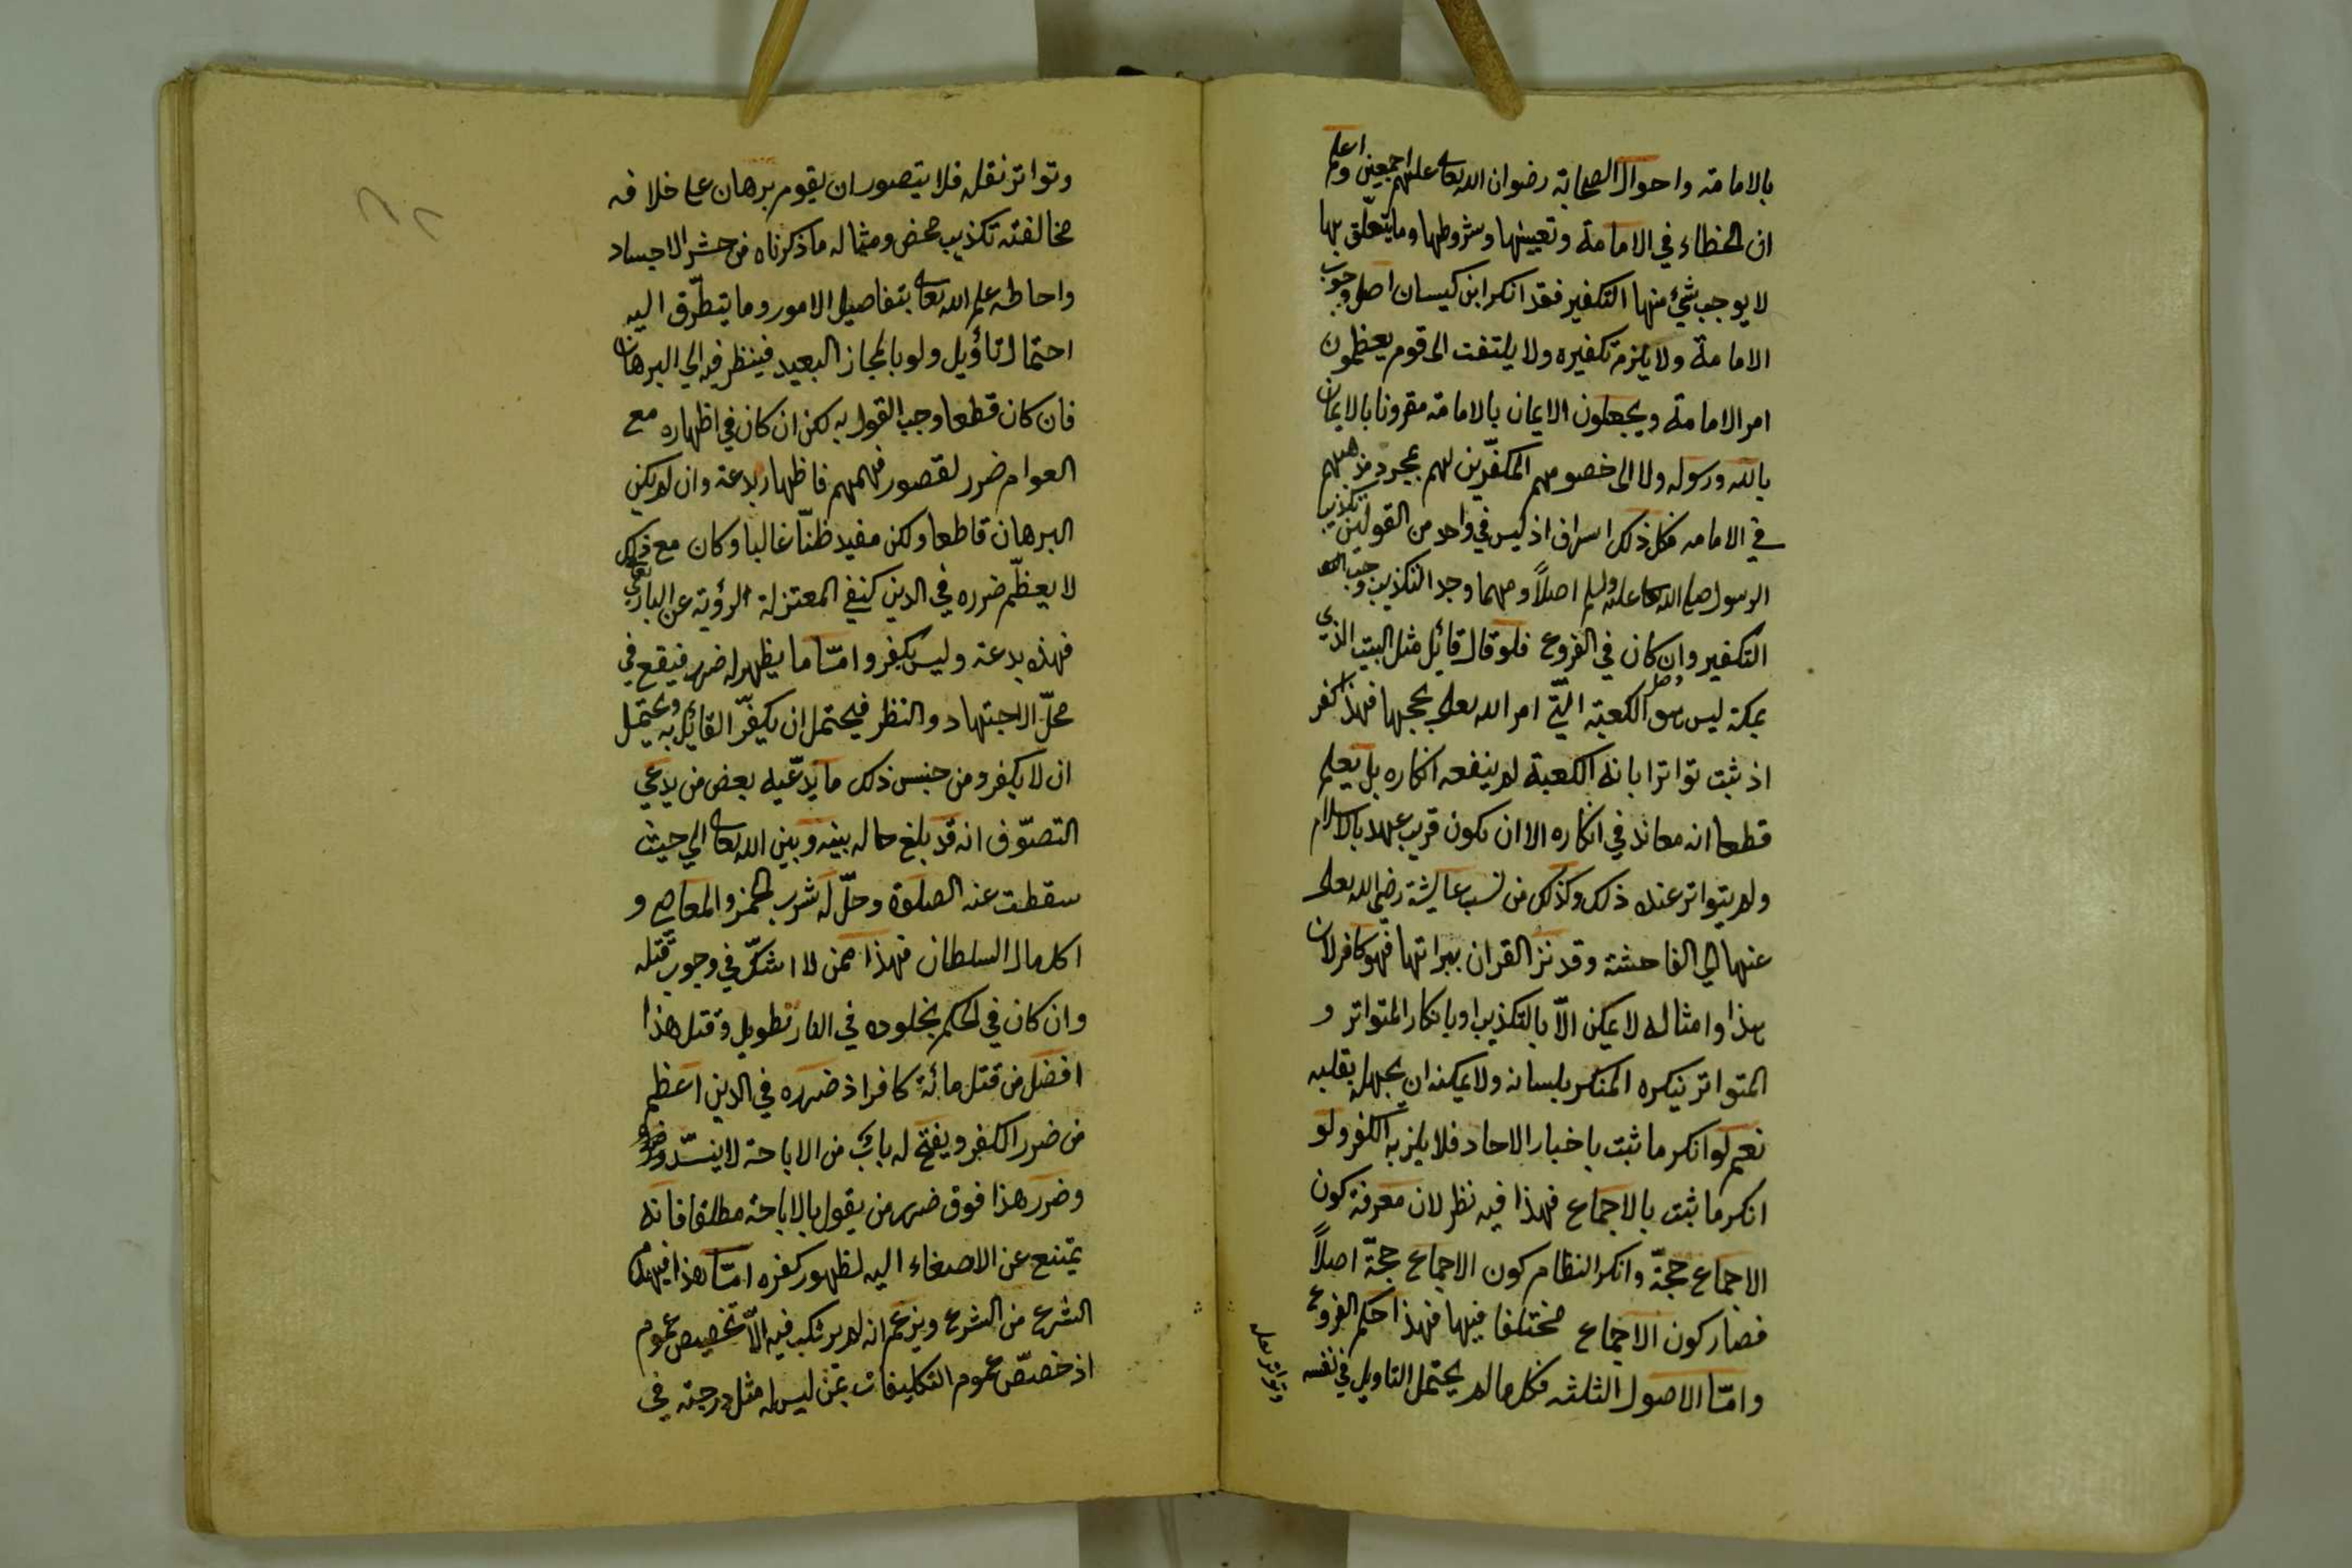 بالامامة واحوال الصحابة رضوان الله تعالى عليهم اجمعين واعلم
ان الخطاء في الامامة وتعيينها وشروطها وما يتعلّق بها
لا يوجب شيئ منها التكفير فقد انكر ابن كيسان اصل وجوب
الامامة ولا يلزم تكفيره ولا يلتفت الى قوم يعظمون
امر الامامة ويجعلون الايمان بالامامة مقرونا بالايمان
بالله ورسوله ولا الى خصومهم المكفّرين لهم بمجرد مذهبهم
في الامامه فكل ذلك اسراف اذ ليس في واحد من القولين تكذيب
الرسول صلى الله تعالى عليه وسلم اصلاً ومهما وجد التكذيب وجب
التكفير وان كان في الفروع فلو قال قائل مثل البيت الذي
بمكة ليس هو الكعبة الّتي امر الله تعالى بحجها فهذا كفر
اذ ثبت تواترا بانه الكعبة لم ينفعه انكاره بل يعلم
قطعا انه معاند في انكاره الا ان يكون قريب عهد بالاسلام
ولم يتواتر عنده ذلك وكذلك من نسب عايشة رضى الله تعالى
عنها الى الفاحشة وقد نزل القران ببراتها فهو كافر لان
هذا وامثاله لا يمكن الّا بالتكذيب او بانكار المتواتر و
المتواتر ينكره المنكر بلسانه ولا يمكنه ان يجهله بقلبه
نعم لو انكر ما ثبت باخبار الاحاد فلا يلزم به الكفر ولو
انكر ما ثبت بالاجماع فهذا فيه نظر لان معرفة كون
الاجماع حجّة وانكر النظام كون الاجماع حجّة اصلاً
فصار كون الاجماع مختلفا فيها فهذا حكم الفروع
وامّا الاصول الثلثه فكل ما لم يحتمل التاويل في نفسه
وتواتر نقله
وتواتر نقله فلا يتصور ان يقوم برهان على خلافه
مخالفته تكذيب محض ومثاله ما ذكرناه من حشر الاجساد
واحاطه علم الله تعالى بتفاصيل الامور وما يتطرّق اليه
احتمال تأويل ولو بالمجاز البعيد فينظر فيه الى البرهان
فان كان قطعا وجب القول به لكن ان كان في اظهاره مع
العوام ضرر لقصور فهمهم فاظهاره بدعة وان لم يكن
البرهان قاطعا ولكن مفيد ظنّا غالبا وكان مع ذلك
لا يعظّم ضرره في الدين كنفي المعتزلة الرؤية عن الباري تعالى
فهذه بدعة وليس بكفر وامّا ما يظهر له ضرر فيقع في
محلّ الاجتهاد والنظر فيحتمل ان يكفّر القائل به ويحتمل
ان لا يكفر ومن جنس ذلك ما يدّعيه بعض من يدعي
التصوّف انه قد بلغ حاله بينه وبين الله تعالى الي حيث
سقطت عنه الصلوة وحلّ له شرب الخمر والمعاصي و
اكل مال السلطان فهذا ممن لا اشكّ في وجوب قتله
وان كان في الحكم بخلوده في النار تطويل وقتل هذا
افضل من قتل مائة كافر اذ ضرره في الدين اعظم
من ضرر الكفر ويفتح له باب من الاباحة لا ينسدّ
وضرر هذا فوق ضرر من يقول بالاباحة مطلقا فانه
يمتنع عن الاصغاء اليه لظهور كفره امّا هذا فيهدم
الشرع من الشرع ويزعم انه لم يرتكب فيه الّا تخصيص عموم
اذ خصّص عموم التكليفات بمن ليس له مثل درجته في